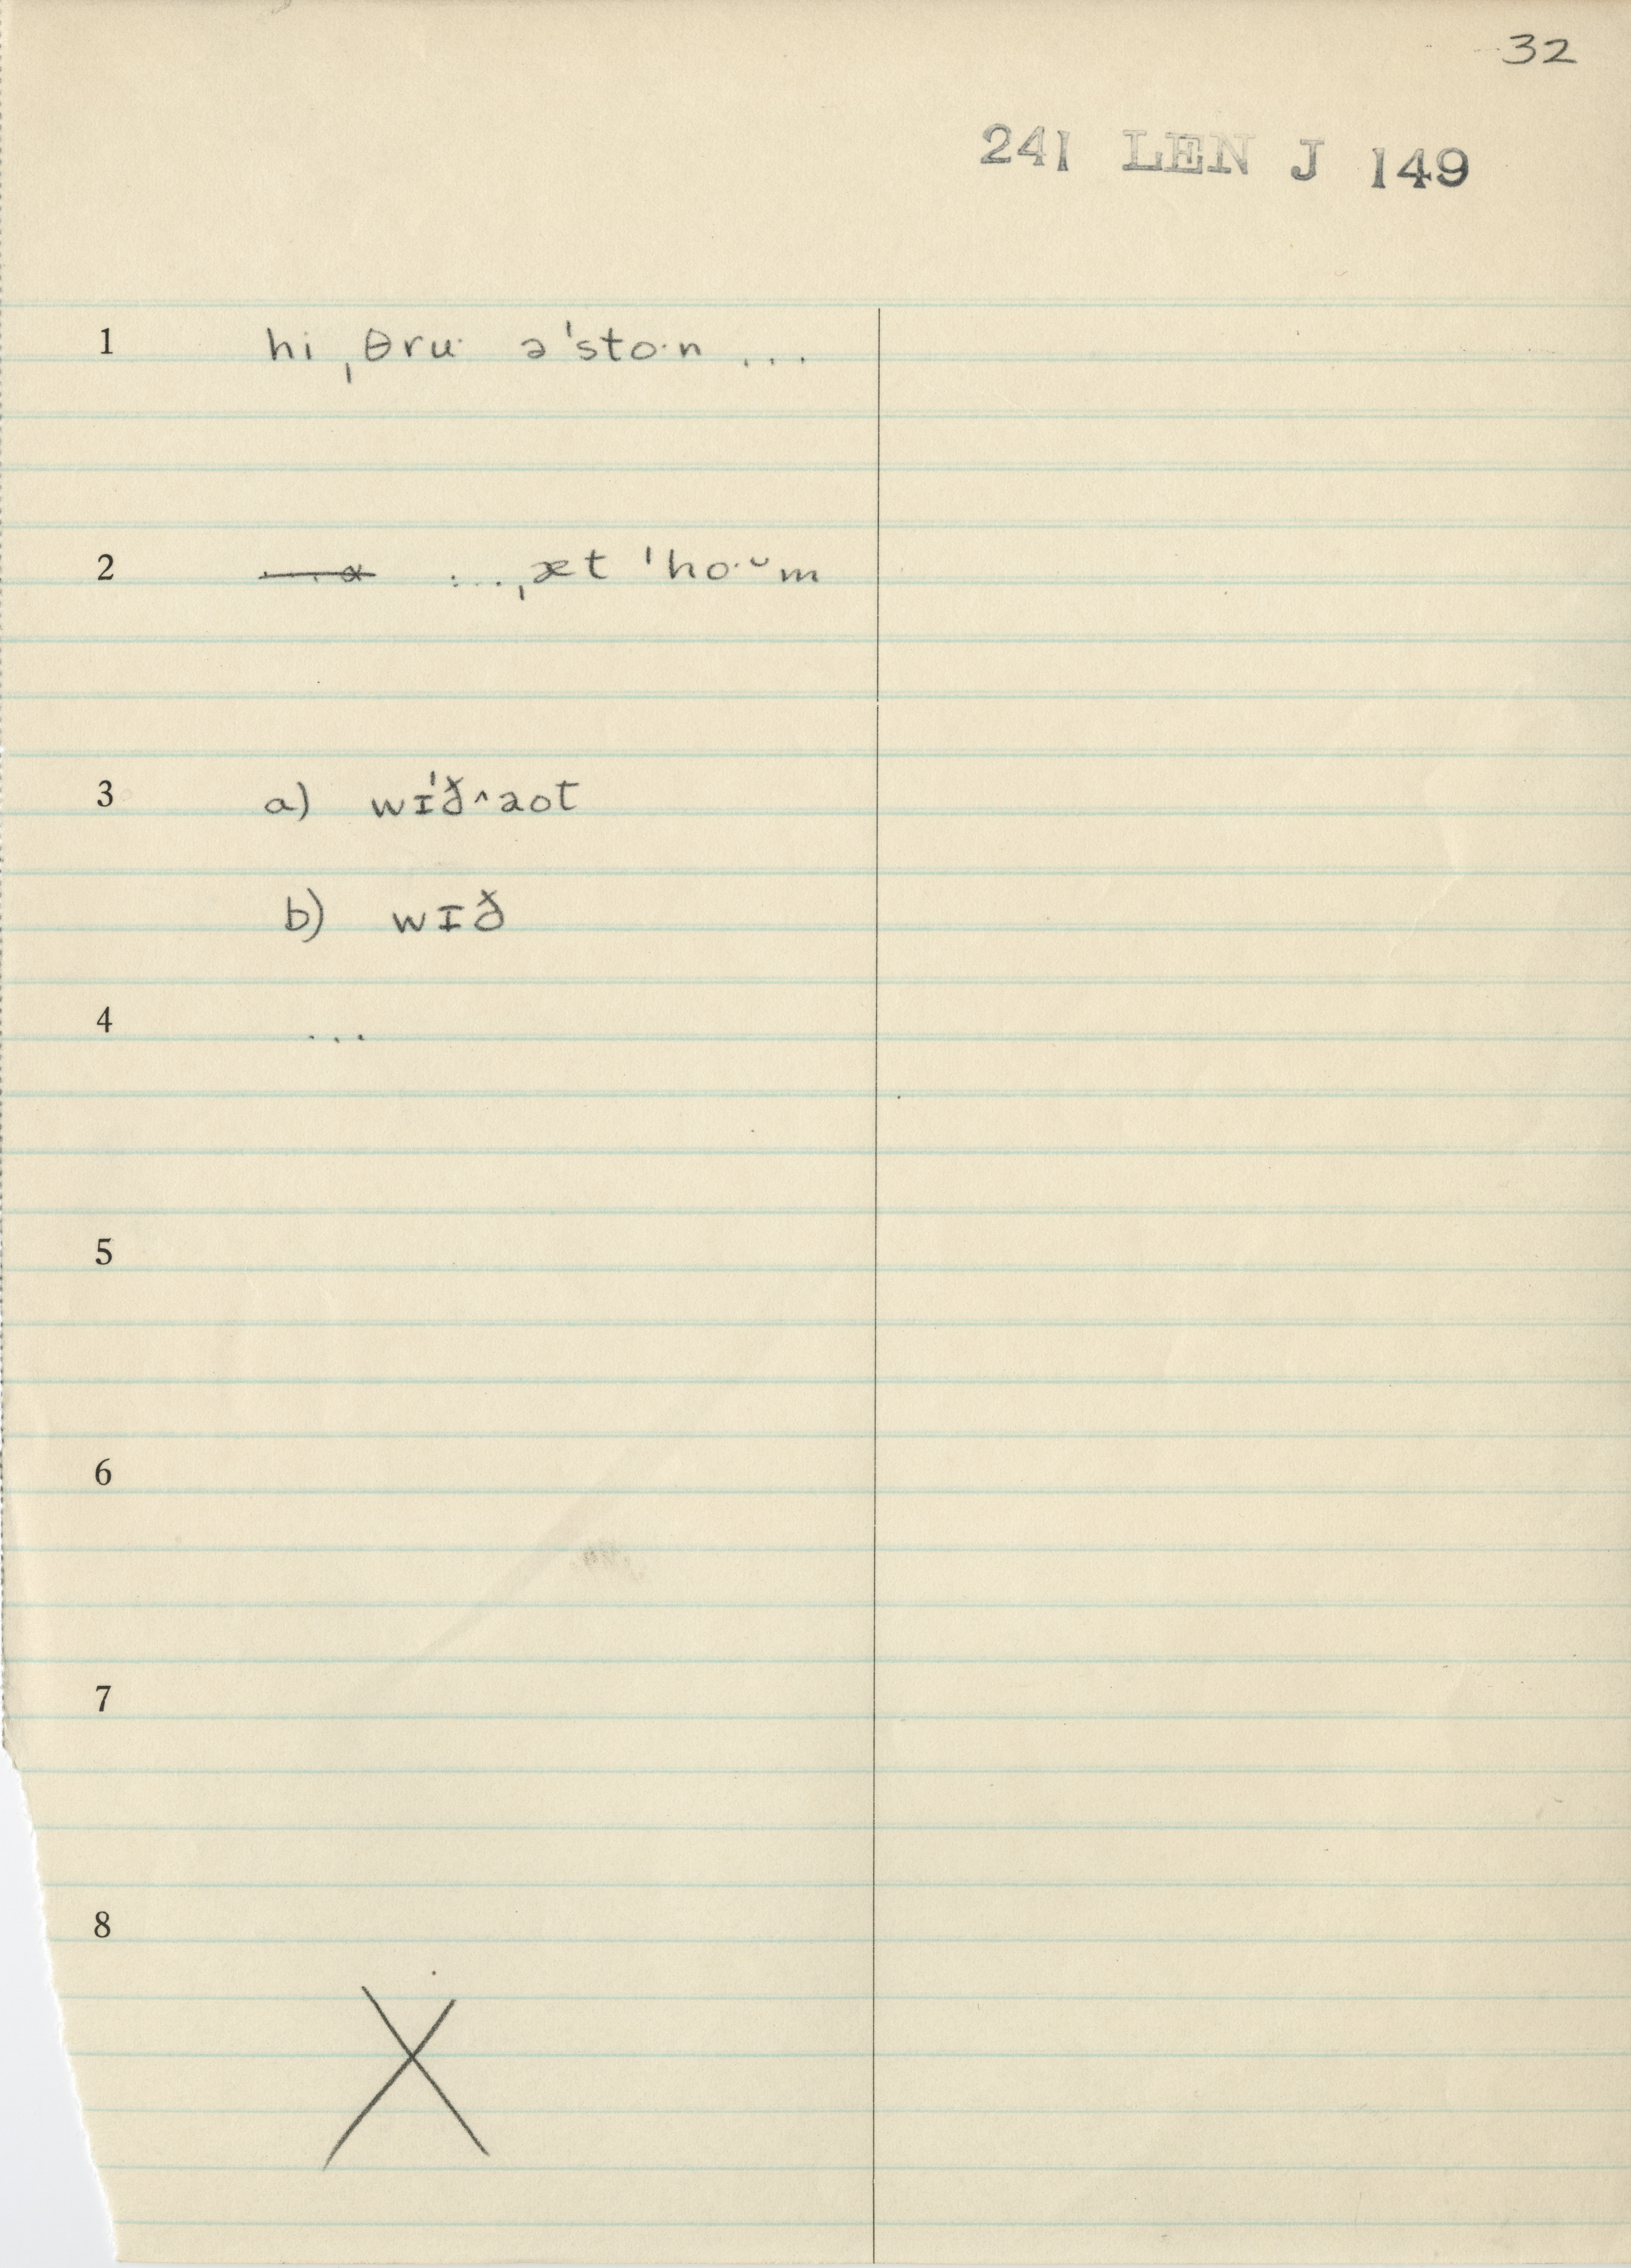 32
241 LEN J 149
1 hi ˌθru· ə'sto·n ...
2 ... ˌæt 'ho·ᵕm
3 a) wɪ'ð^aot
b) wɪð
4 ...
5
6
7
8
X